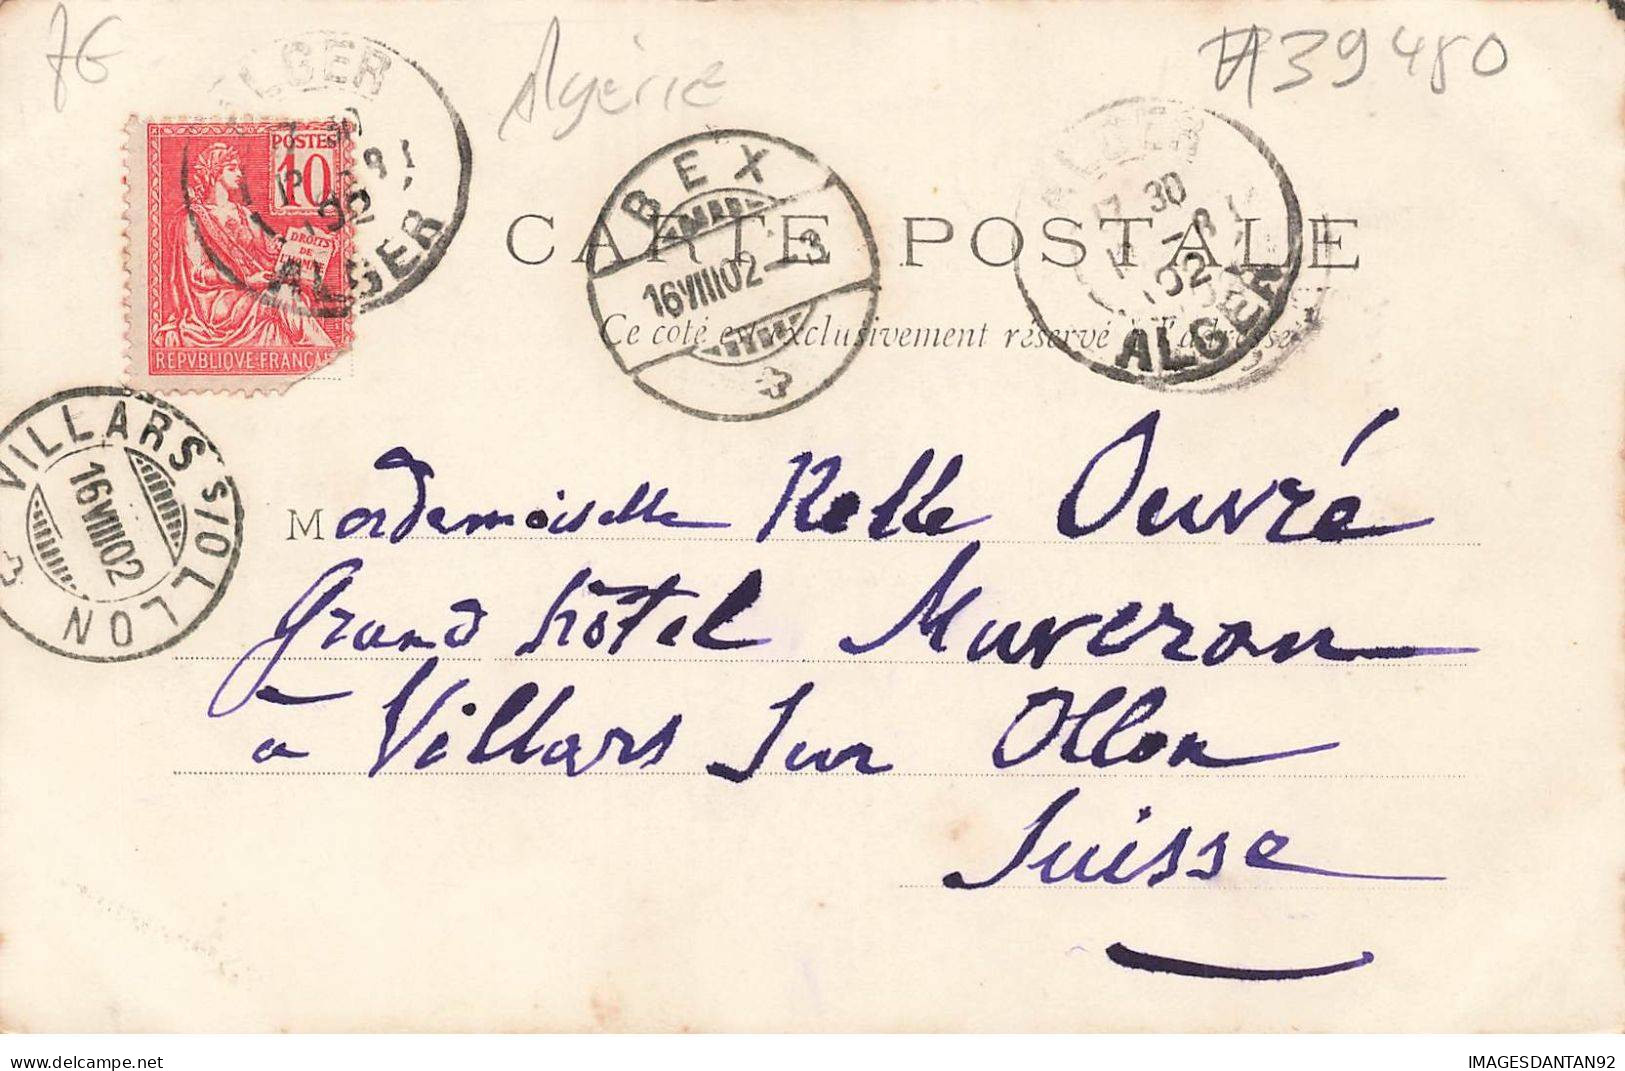 7E
Algérie
A39480
ALGER
POSTES
10
DROITS
DE
L'HOMME
REPVBLIQVE FRANÇAI
ALGER
BEX
16 VIII 02 - 3
ALGER
17 30
02
ALGER
CARTE POSTALE
Ce côté est exclusivement réservé à l'adresse
VILLARS S/OLLON
16 VIII 02
Mademoiselle Nelle Ouvré
Grand hôtel Muveran
à Villars Sur Ollon
Suisse
delcampe.net
IMAGESDANTAN92